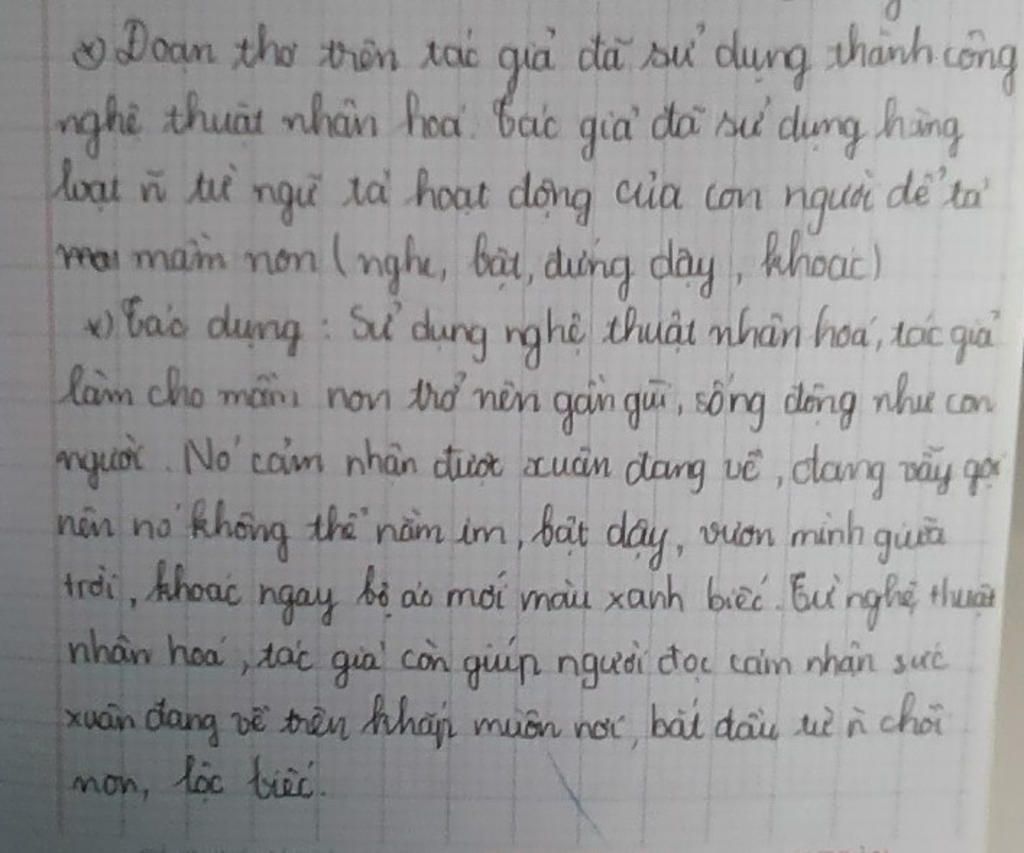 *) Đoạn thơ trên tác giả đã sử dụng thành công
nghệ thuật nhân hoá. Tác giả đã sử dụng hàng
loạt ~n từ ngữ tả hoạt động của con người để tả
mầm non (nghe, bật, đứng dậy, khoác)
*) Tác dụng: Sử dụng nghệ thuật nhân hoá, tác giả
làm cho mầm non trở nên gần gũi, sống động như con
người. Nó cảm nhận được xuân đang về, đang vẫy gọi
nên nó không thể nằm im, bật dậy, vươn mình giữa
trời, khoác ngay bộ áo mới màu xanh biếc. Từ nghệ thuật
nhân hoá, tác giả còn giúp người đọc cảm nhận sức
xuân đang về trên khắp muôn nơi, bắt đầu từ ~n chồi
non, lộc biếc.